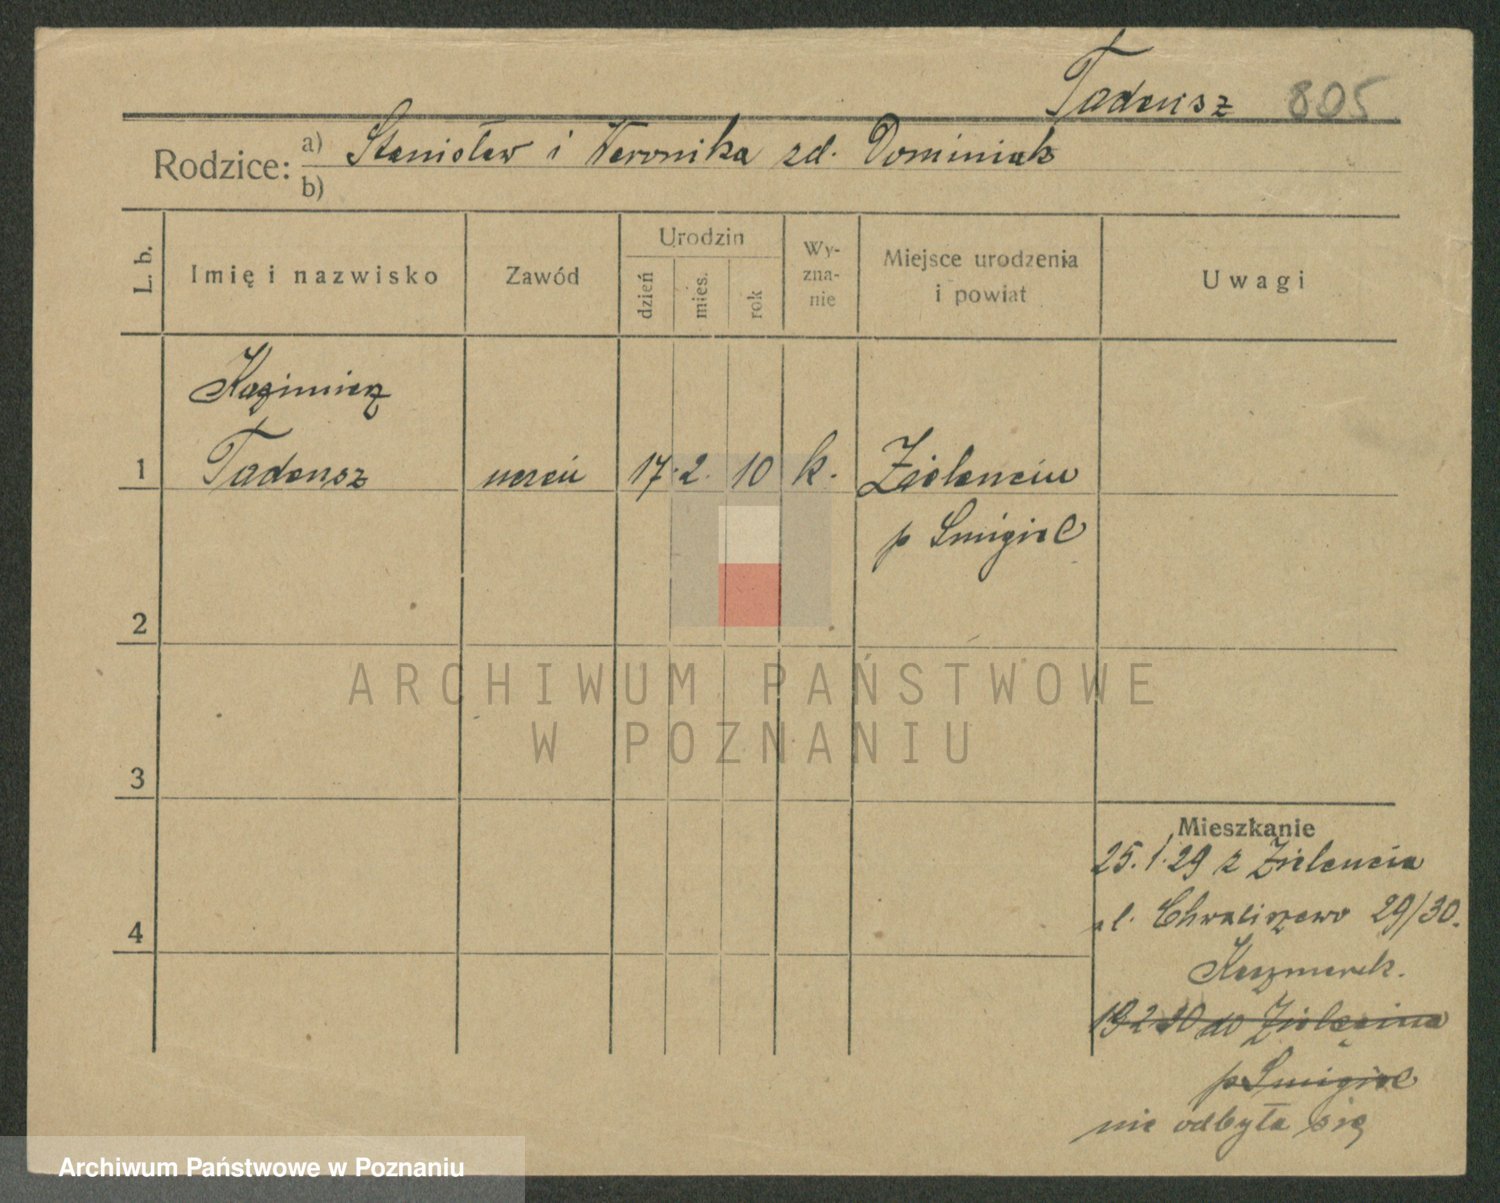 Tadeusz 805
Rodzice: a) Stanisław i Weronika zd. Dominiak
b)
L. b.
Imię i nazwisko
Zawód
Urodzin
dzień
mies.
rok
Wy-
zna-
nie
Miejsce urodzenia
i powiat
Uwagi
Kazimierz
1 Tadeusz uczeń 17. 2. 10 k. Zielencin
p Smigiel
2
ARCHIWUM PAŃSTWOWE
W POZNANIU
3
Mieszkanie
25.1.29 z Zielencina
ul. Chwaliszewo 29/30.
4
Kaczmarek.
19 2 30 do Zielęcina
p Smigiel
nie odbyła się
Archiwum Państwowe w Poznaniu